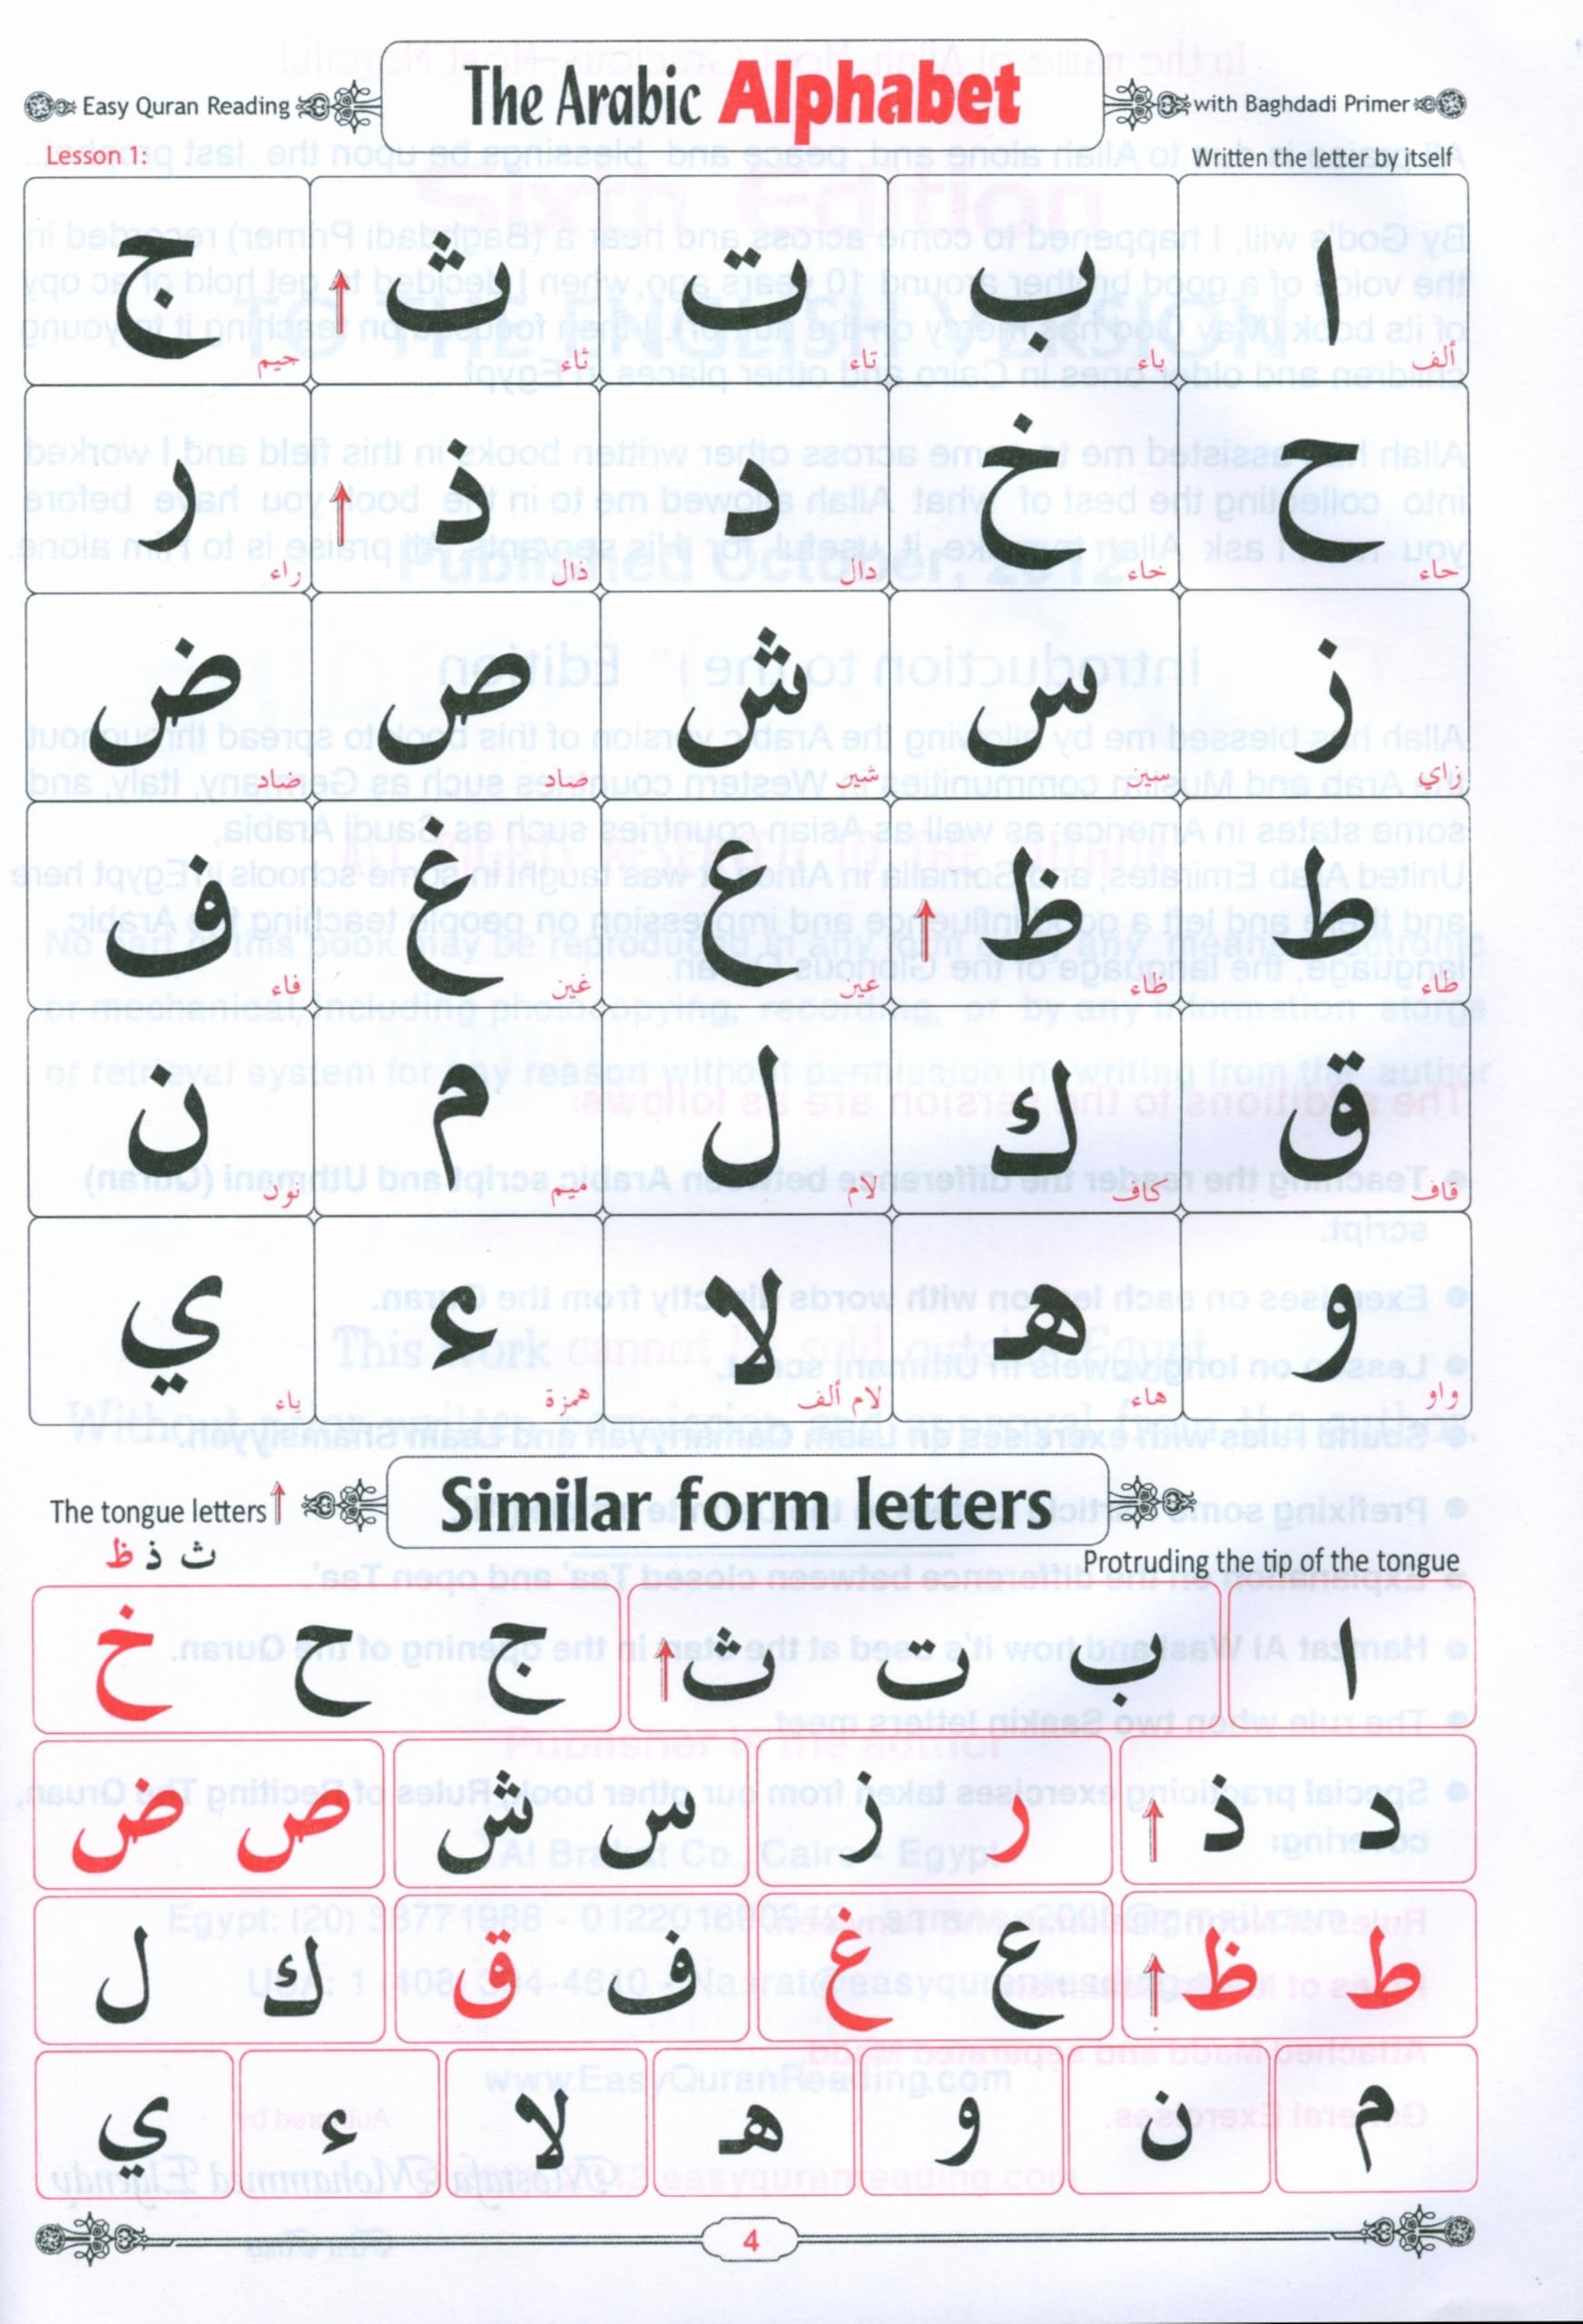 Easy Quran Reading The Arabic Alphabet with Baghdadi Primer
Lesson 1: Written the letter by itself
ا ب ت ث ج
ألف باء تاء ثاء جيم
ح خ د ذ ر
حاء خاء دال ذال راء
ز س ش ص ض
زاي سين شين صاد ضاد
ط ظ ع غ ف
طاء ظاء عين غين فاء
ق ك ل م ن
قاف كاف لام ميم نون
و هـ لا ء ي
واو هاء لام ألف همزة ياء
The tongue letters Similar form letters
ث ذ ظ
Protruding the tip of the tongue
ا ب ت ث ج ح خ
د ذ ر ز س ش ص ض
ط ظ ع غ ف ق ك ل
م ن و هـ لا ء ي
4